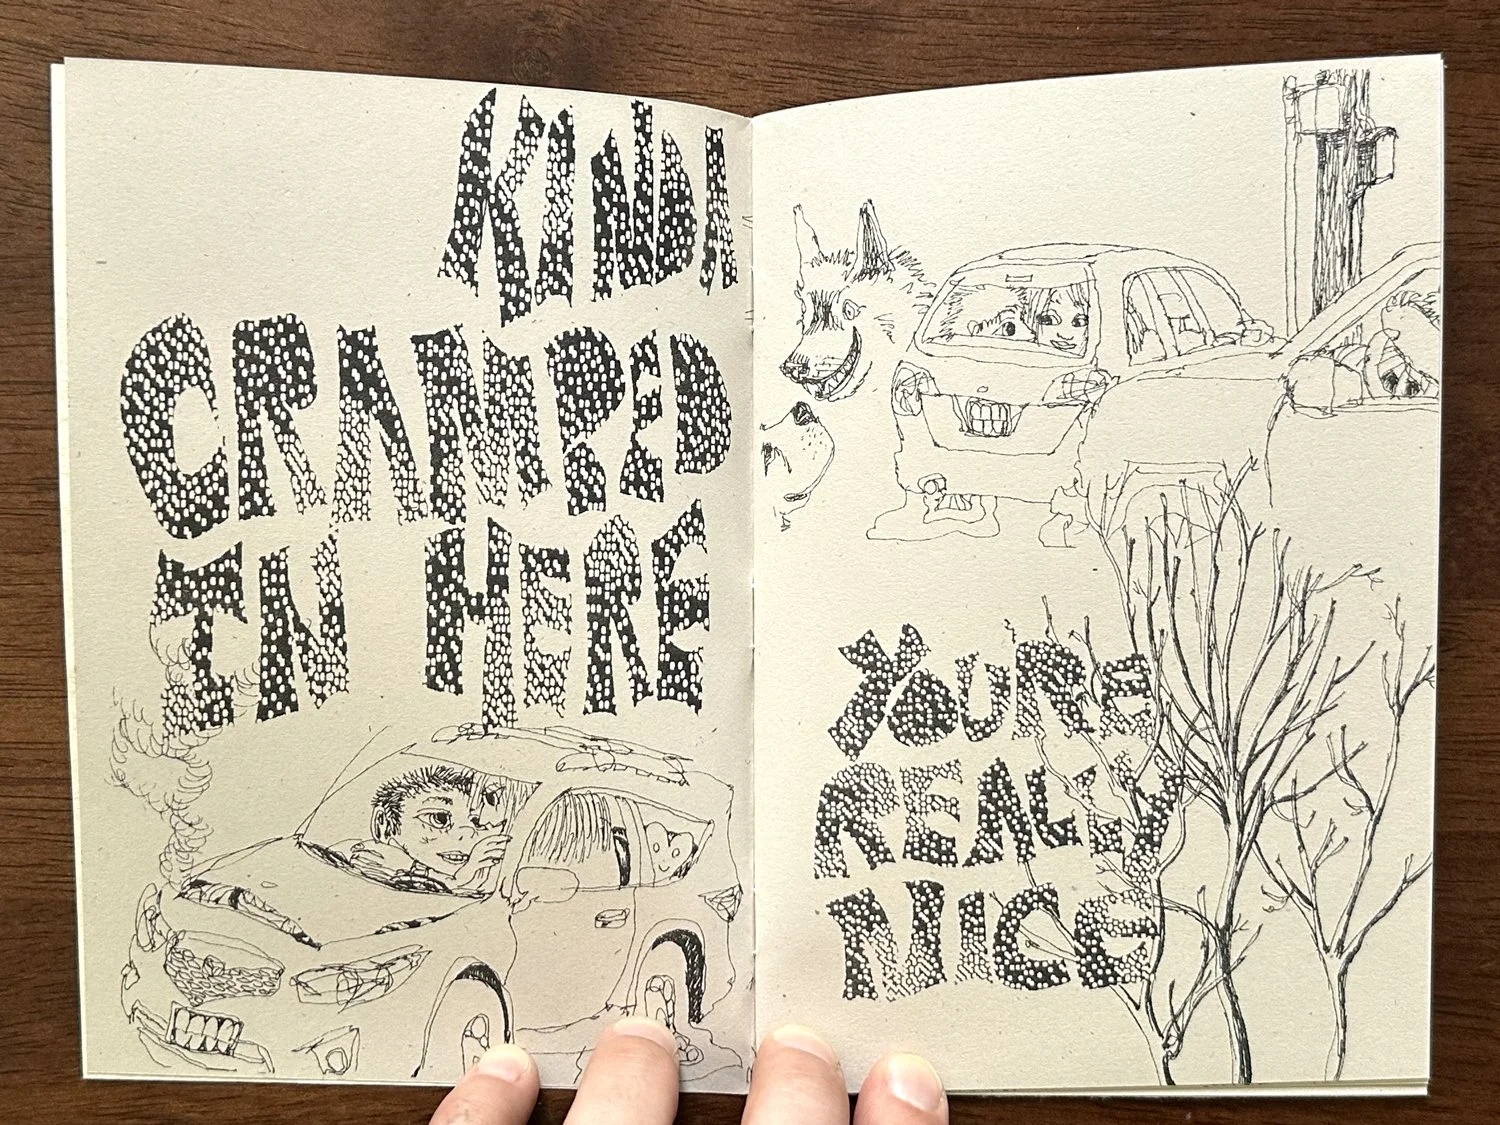 KINDA
CRAMPED
IN HERE
YOU'RE
REALLY
NICE